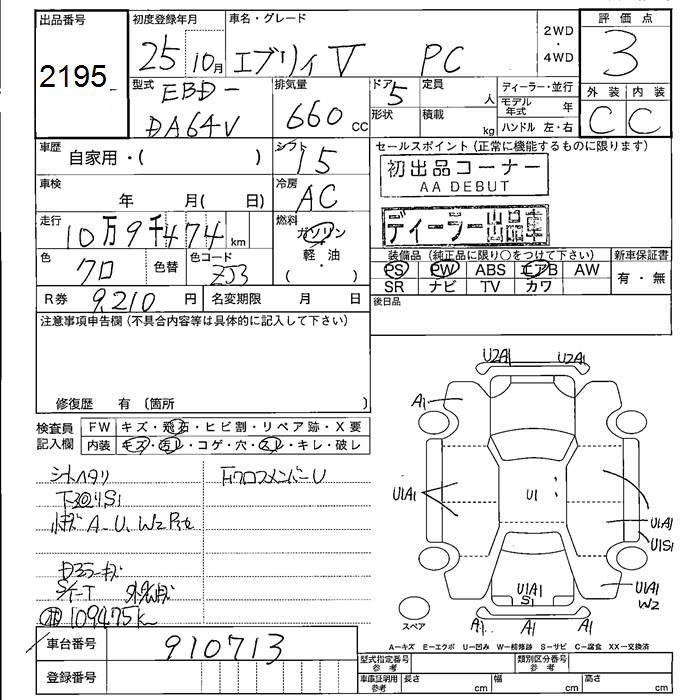 出品番号 初度登録年月 車名・グレード 2WD・4WD 評価点
2195 25 10月 エブリィ V PC 3
型式 EBD-DA64V 排気量 660 CC ドア形状 5 定員 人 積載 kg ディーラー・並行 モデル年式 年 ハンドル 左・右 外装 C 内装 C
車歴 自家用・( ) シフト I5 セールスポイント (正常に機能するものに限ります)
初出品コーナー
AA DEBUT
車検 年 月( 日) 冷房 AC
ディーラー出品車
走行 10万9千474 km 燃料 ガソリン・軽油( )
装備品 (純正品に限り○をつけて下さい) 新車保証書
色 クロ 色替 色コード ZJ3 PS PW ABS エアB AW 有・無
SR ナビ TV カワ
R券 9,210 円 名変期限 月 日 後日品
注意事項申告欄 (不具合内容等は具体的に記入して下さい)
修復歴 有 (箇所 )
検査員記入欄 FW キズ・飛石・ヒビ割・リペア跡・X要
内装 キズ・汚レ・コゲ・穴・スレ・キレ・破レ
シートヘタリ
FフロアクロスメンバーU
小キズ A-U、W2
109475k
U2A1 U2A1
A1
U1A1 U1 U1A1
U1S1
U1A1 S1 U1A1 W2
スペア A1 A1 A1
A－キズ E－エクボ U－凹み W－補修跡 S－サビ C－腐食 XX－交換済
車台番号 910713
登録番号
型式指定番号 参考 類別区分番号 参考
車庫証明用 参考 長さ cm 幅 cm 高さ cm